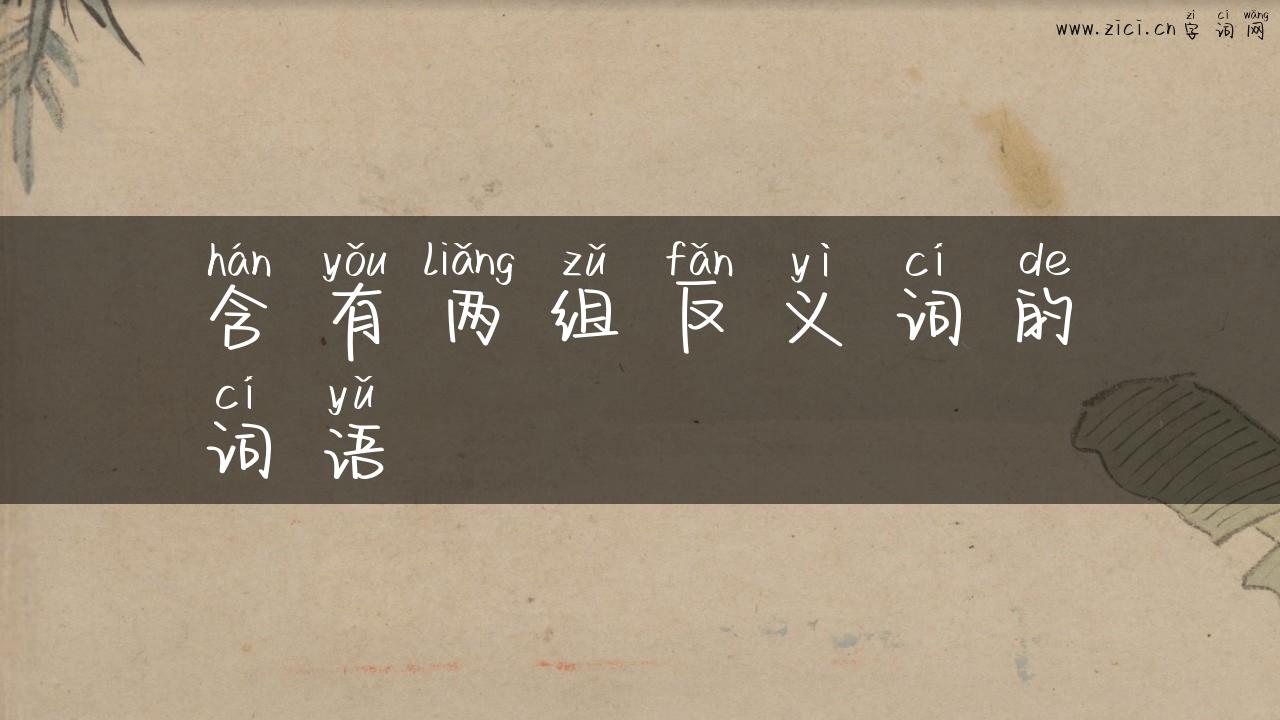 zì cí wǎng
www.zici.cn 字词网
hán yǒu liǎng zǔ fǎn yì cí de
含有两组反义词的
cí yǔ
词语